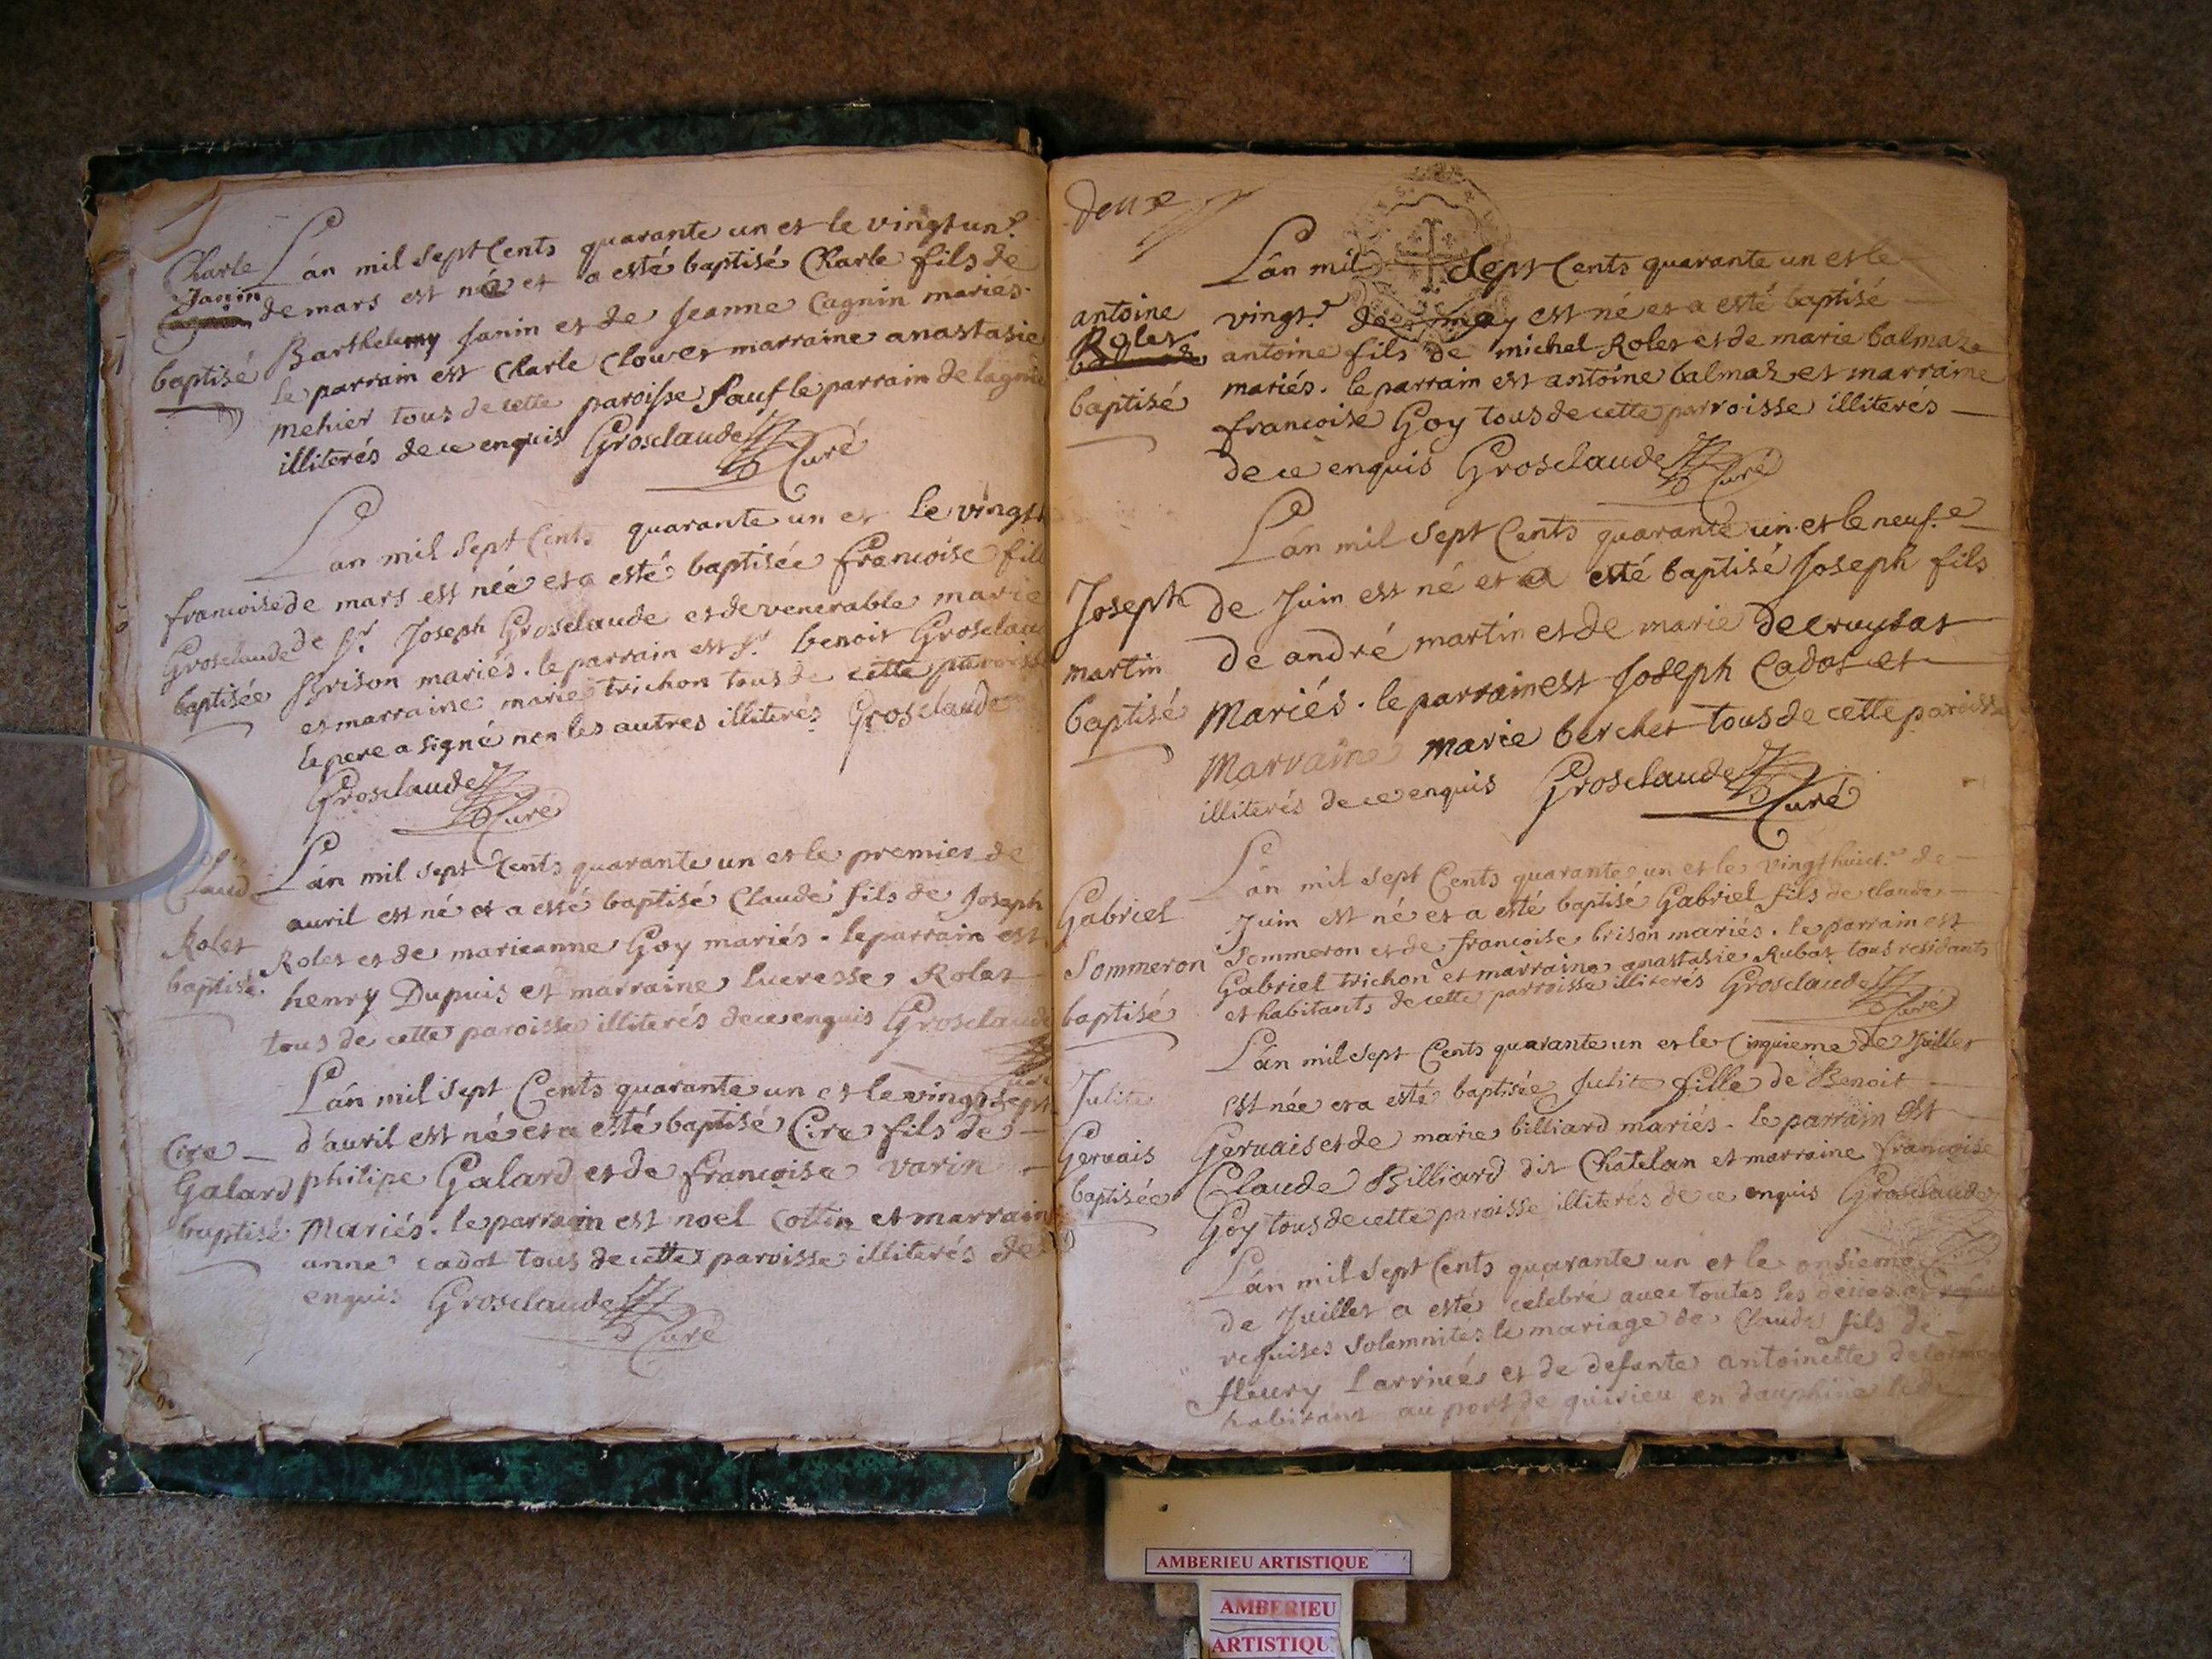 Charle
Janin
baptisé
Lán mil Sept Cents quarante un et le vingt un.e
de mars est né et a esté baptisé Charle fils de
Barthelemy Janin et de Jeanne Cagnin mariés.
le parrain est Charle Clouet marraine anastasie
mehier tous de cette paroisse Sauf le parrain de
illiterés de ce enquis Grosclaude
Curé
francoise
Grosclaude
baptisée
Lan mil Sept Cents quarante un et le vingt
de mars est née et a esté baptisée francoise
de Sr. Joseph Grosclaude et de venerable marie
Grison mariés. le parrain est Sr. benoit
et marraine marie trichon tous de cette
le pere a signé non les autres illiterés Grosclaude
Grosclaude
Curé
Claude
Rolet
baptisé
Lán mil sept Cents quarante un et le premier de
auril est né et a esté baptisé Claude fils de Joseph
Rolet et de marieanne Goy mariés. le parrain est
henry Dupuis et marraine lucresse Rolet
tous de cette paroisse illiterés de ce enquis Grosclaude
Cire
Galard
baptisé
Lán mil Sept Cents quarante un et le vingt sept
d'auril est né et a esté baptisé Cire fils de
philipe Galard et de francoise varin
Mariés. le parrain est noel Cottin et marraine
anne cadot tous de cette paroisse illiterés de
enquis Grosclaude
Curé
deux
antoine
Rolet
baptisé
Lán mil Sept Cents quarante un et le
vingt.e de may est né et a esté baptisé
antoine fils de michel Rolet et de marie balmaz
mariés. le parrain est antoine balmaz et marraine
francoise Goy tous de cette parroisse illiterés
de ce enquis Grosclaude
Curé
Joseph
martin
baptisé
Lán mil Sept Cents quarante un et le neuf.e
de Juin est né et a esté baptisé Joseph fils
de andré martin et de marie
Mariés. le parrain est Joseph Cadot et
Marraine marie berchet tous de cette paroisse
illiterés de ce enquis Grosclaude
Curé
Gabriel
Sommeron
baptisé
Lán mil Sept Cents quarante un et le vingt huict.e de
Juin est né et a esté baptisé Gabriel fils de claude
Sommeron et de francoise brison mariés. le parrain est
Gabriel trichon et marraine anastasie Rubat tous residants
et habitants de cette parroisse illiterés Grosclaude
Curé
Julite
Geruais
baptisée
Lán mil Sept Cents quarante un et le Cinquieme de Juillet
est née et a esté baptisée Julite fille de Benoit
Geruais et de marie billiard mariés. le parrain est
Claude Billiard dit Chatelan et marraine francoise
Goy tous de cette paroisse illiterés de ce enquis Grosclaude
Lán mil Sept Cents quarante un et le onsieme
de Juillet a esté celebré auec toutes les deües et
requises Solemnités le mariage de Claude fils de
fleury Larriué et de defunte antoinette
habitant au port de quirieu en dauphiné
AMBERIEU ARTISTIQUE
AMBERIEU
ARTISTIQU